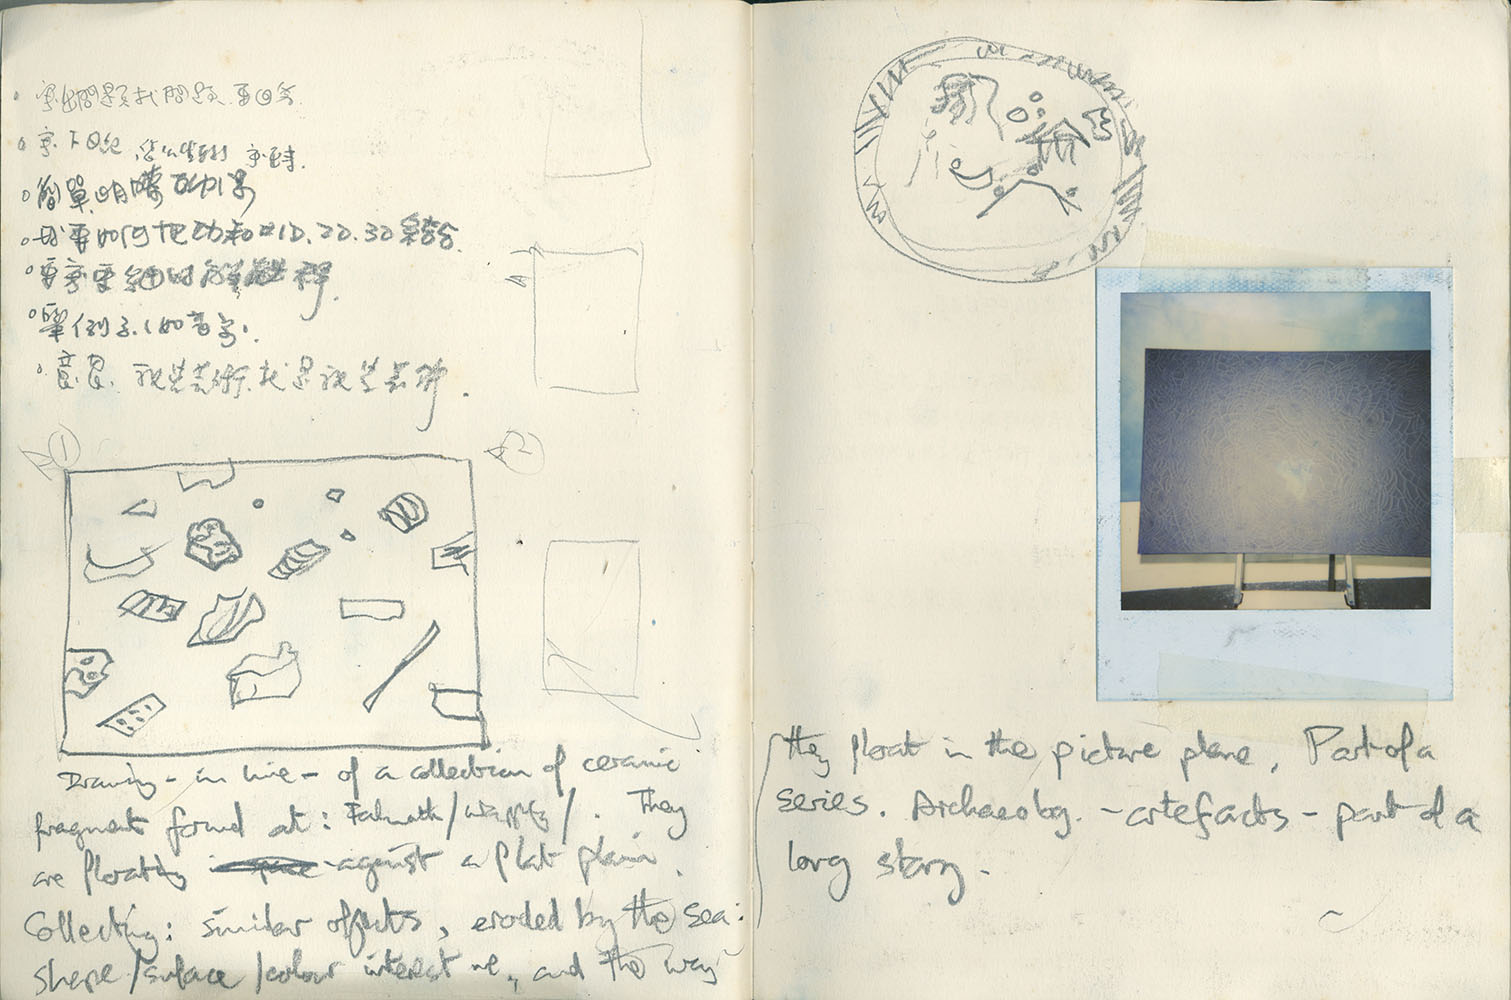 寫出問題找問題.要回答
寫下日記 怎么 寫
簡單明瞭
我要如何把動和1D.2D.3D結合
要寫更細的解釋
舉例子.(如音
意思. 視覺藝術就是視覺藝術.
1
2
Drawing - in line - of a collection of ceramic
fragments found at: Falmouth/Wapping/. They
are floating against a flat plain.
Collecting: similar objects, eroded by the sea:
shape/surface/colour interest me, and the way
they float in the picture plane. Part of a
series. Archaeology. - artefacts - part of a
long story.